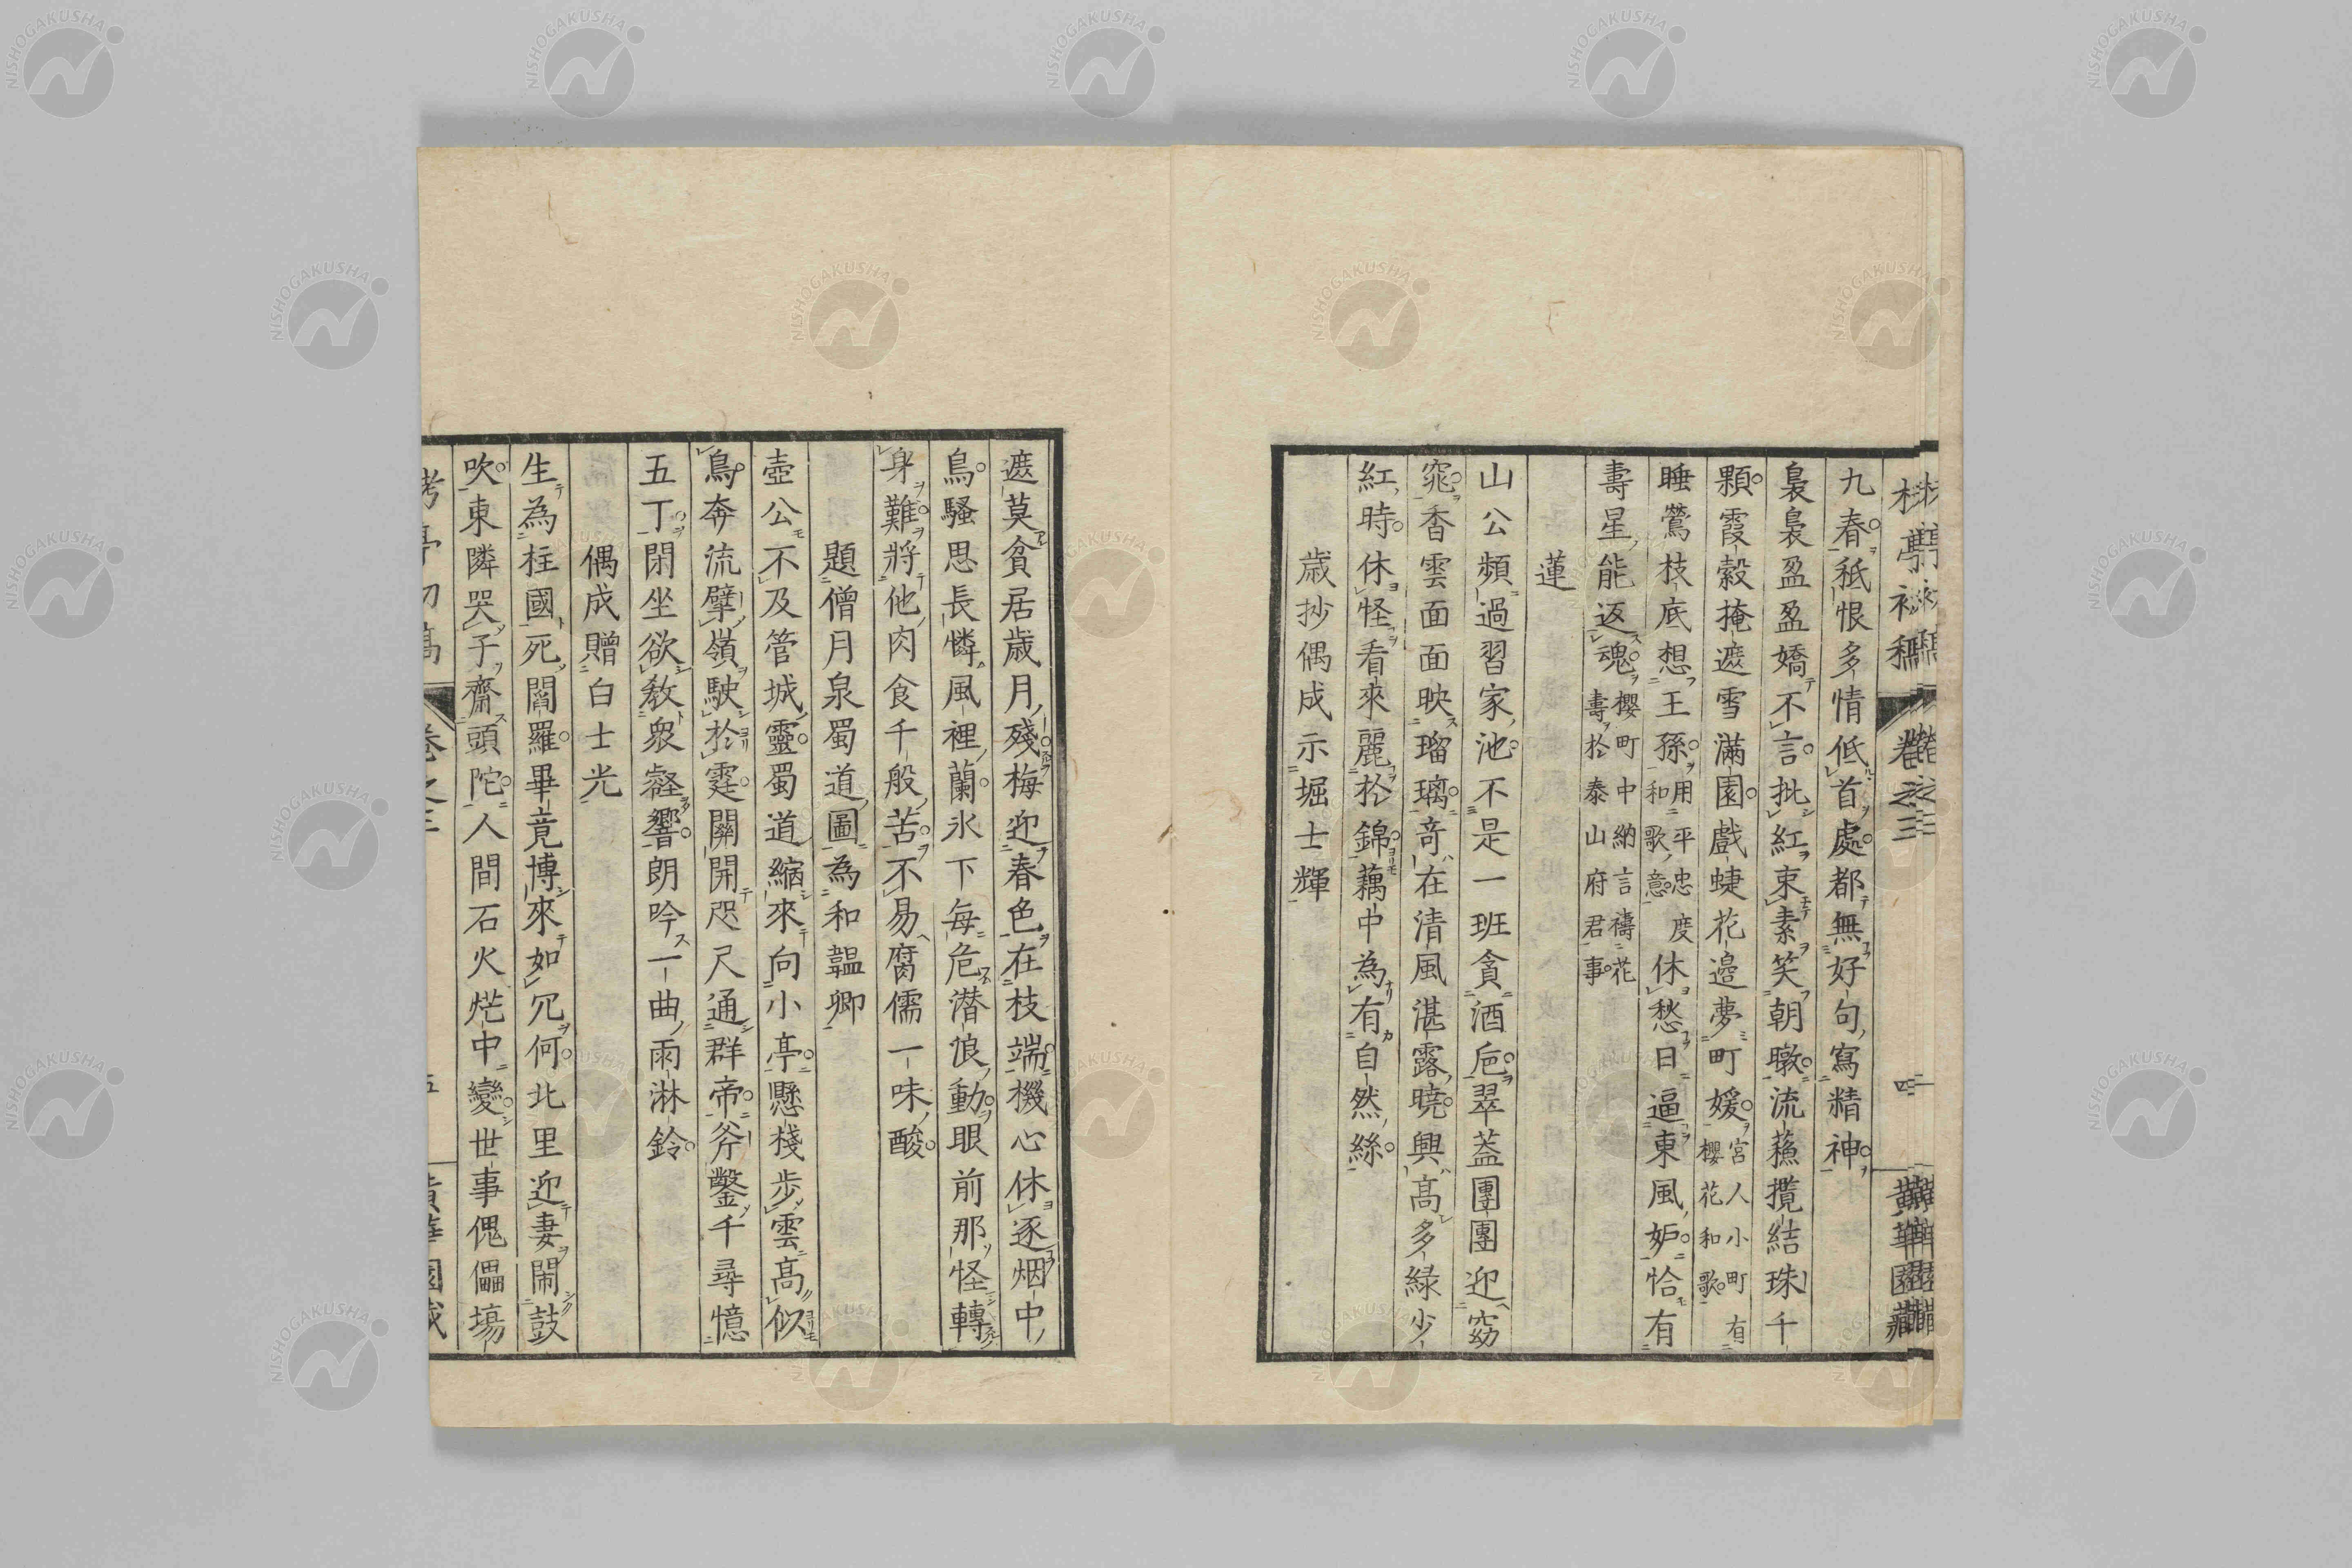 九春秖恨多情低首處都無好句寫精神
裊裊盈盈嬌不言批紅束素笑朝暾流蘓攬結珠千
顆霞縠掩遮雪滿園戲蜨花邉夢町媛宮人小町有櫻花和歌
睡鶯枝底想王孫用平忠度和歌意休愁日逼東風妒恰有
壽星能返魂櫻町中納言禱花壽於泰山府君事
蓮
山公頻過習家池不是一班貪酒巵翠蓋團團迎窈
窕香雲面面映瑠璃竒在清風湛露曉興高多緑少
紅時休怪看來麗於錦藕中為有自然絲
歳抄偶成示堀士輝
遮莫貧居歳月殘梅迎春色在枝端機心休逐烟中
鳥騷思長憐風裡蘭氷下每危潜 動眼前那怪轉
身難將他肉食千般苦不易腐儒一味酸
題僧月泉蜀道圖為和韞卿
壺公不及管城靈蜀道縮來向小亭懸棧步雲高似
鳥奔流擘嶺駛於霆關開咫尺通群帝斧鑿千尋憶
五丁閑坐欲敎衆壑響朗吟一曲雨淋鈴
偶成贈白士光
生為柱國死閻羅畢竟博來如冗何北里迎妻閙鼓
吹東隣哭子齋頭陀人間石火 中變世事傀儡塲
卷之三
四
黄華園藏